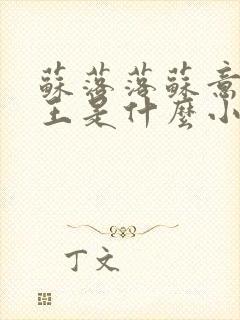 蘇落落蘇意
王是什麼小
丁文